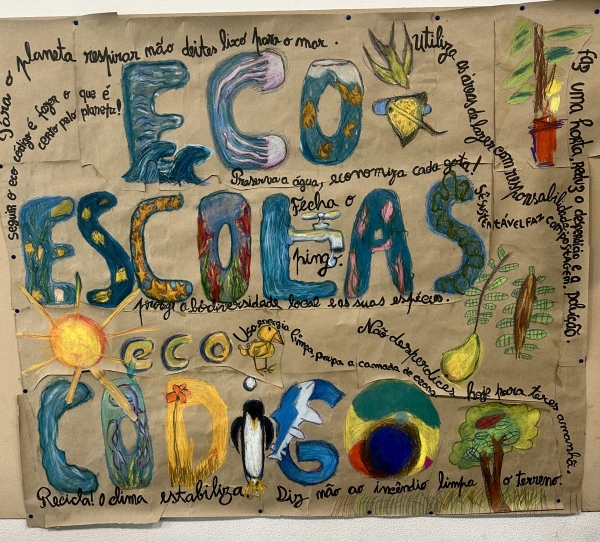 Para o planeta respirar não deites lixo para o mar.
Seguir o eco código é fazer o
que é
certo pelo planeta!
ECO
Utiliza as áreas de lazer com responsabilidade.
Preserva a água, economiza cada gota!
Fecha o
pingo.
SÊ SUSTENTÁVEL FAZ COMPOSTAGEM.
Faz uma horta, reduz o desperdício e a poluição.
ESCOLAS
Protege a biodiversidade local e as suas espécies.
eco
Usa energia limpa, poupa a camada de ozono
Não desperdices hoje para teres amanhã.
CÓDIGO
Recicla! O clima estabiliza
Diz não ao incêndio limpa o terreno.